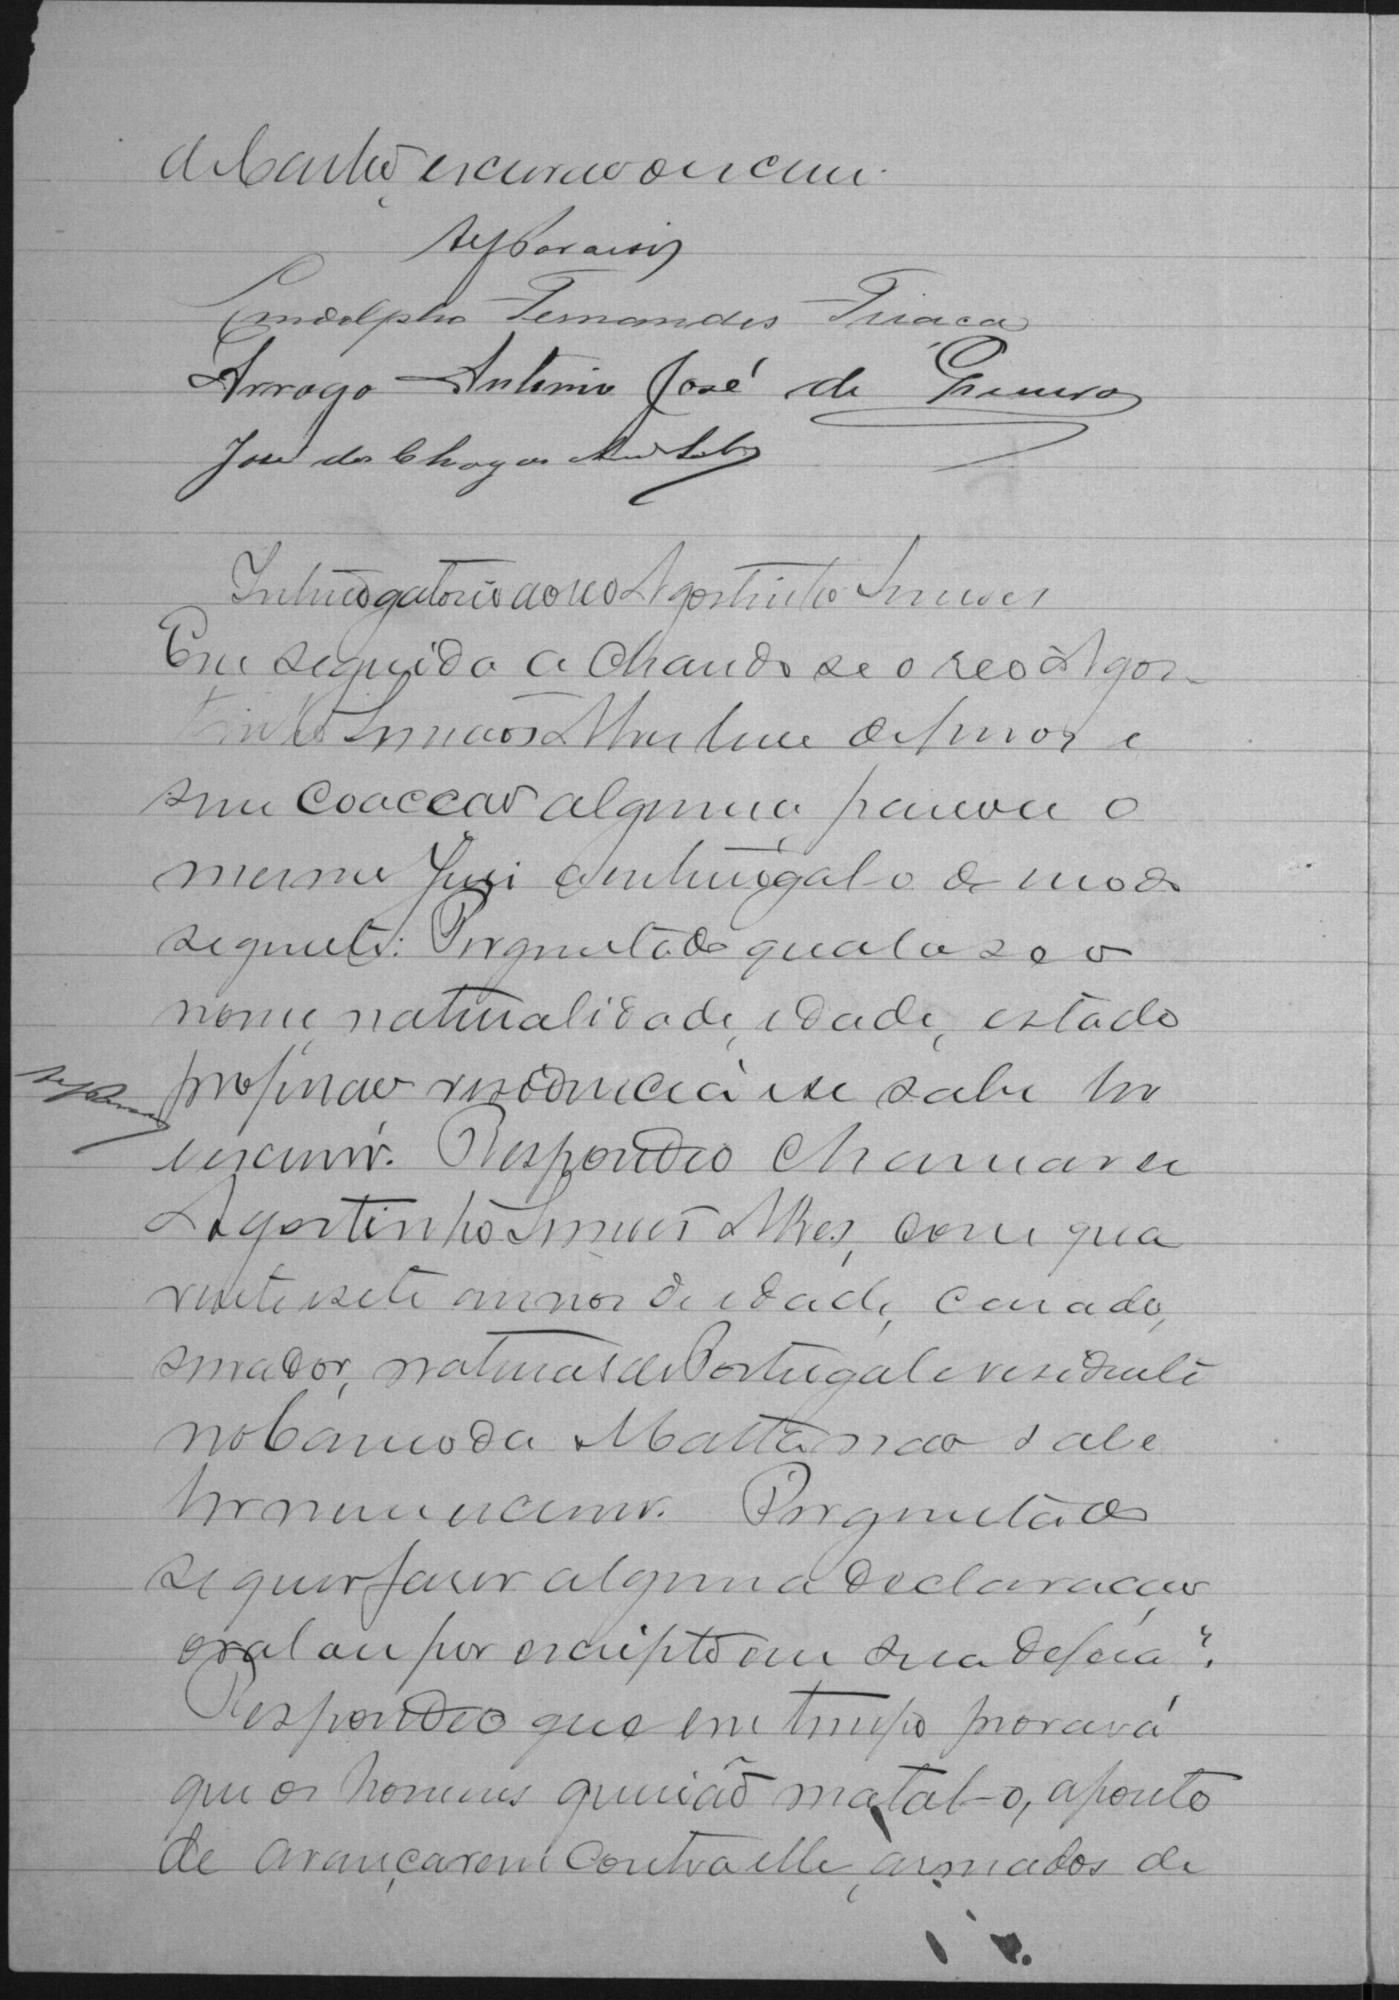 de Castro, escrivão escrevi.
Rodolpho Fernandes Friaça
Arrogo Antonio José de
José das Chagas
Interrogatorio ao reo Agostinho Simões
Em seguida achando se o reo Agos-
tinho Simões Alves livre de ferros e
sem coaccão alguma, passou o
mesmo Juiz a interrogal-o do modo
seguinte: Perguntado qual o seo
nome, naturalidade, idade, estado
profissão residencia e se sabe ler
e escrever. Respondeo chamar se
Agostinho Simões Alves, com qua
renta e sete annos de idade, casado,
serrador, natural de Portugal e residente
no Carmo da Matta não sabe
ler nem escrever. Perguntado
se quer faser alguma declaração
oral ou por escripto em sua defesa?
Respondeo que em tempo provará
que os homens querião matal-o, aponto
de avançarem contra elle, armados de